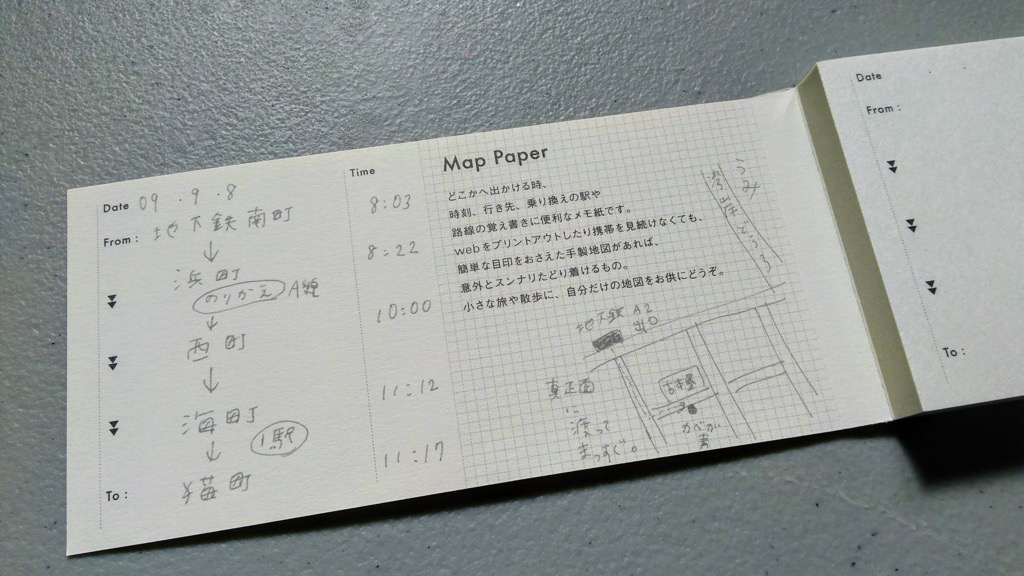 Date 09.9.8
Time
From: 地下鉄南町
8:03
↓
浜町
8:22
のりかえ A線
↓
西町
10:00
↓
海町
11:12
↓ 1駅
To: 猫町
11:17
Map Paper
どこかへ出かける時、
時刻、行き先、乗り換えの駅や
路線の覚え書きに便利なメモ紙です。
webをプリントアウトしたり携帯を見続けなくても、
簡単な目印をおさえた手製地図があれば、
意外とスンナリたどり着けるもの。
小さな旅や散歩に、自分だけの地図をお供にどうぞ。
うみ
地下鉄 A2
出口
真正面
に
渡って
まっすぐ。
古本屋
かべが
青
Date
From:
To: